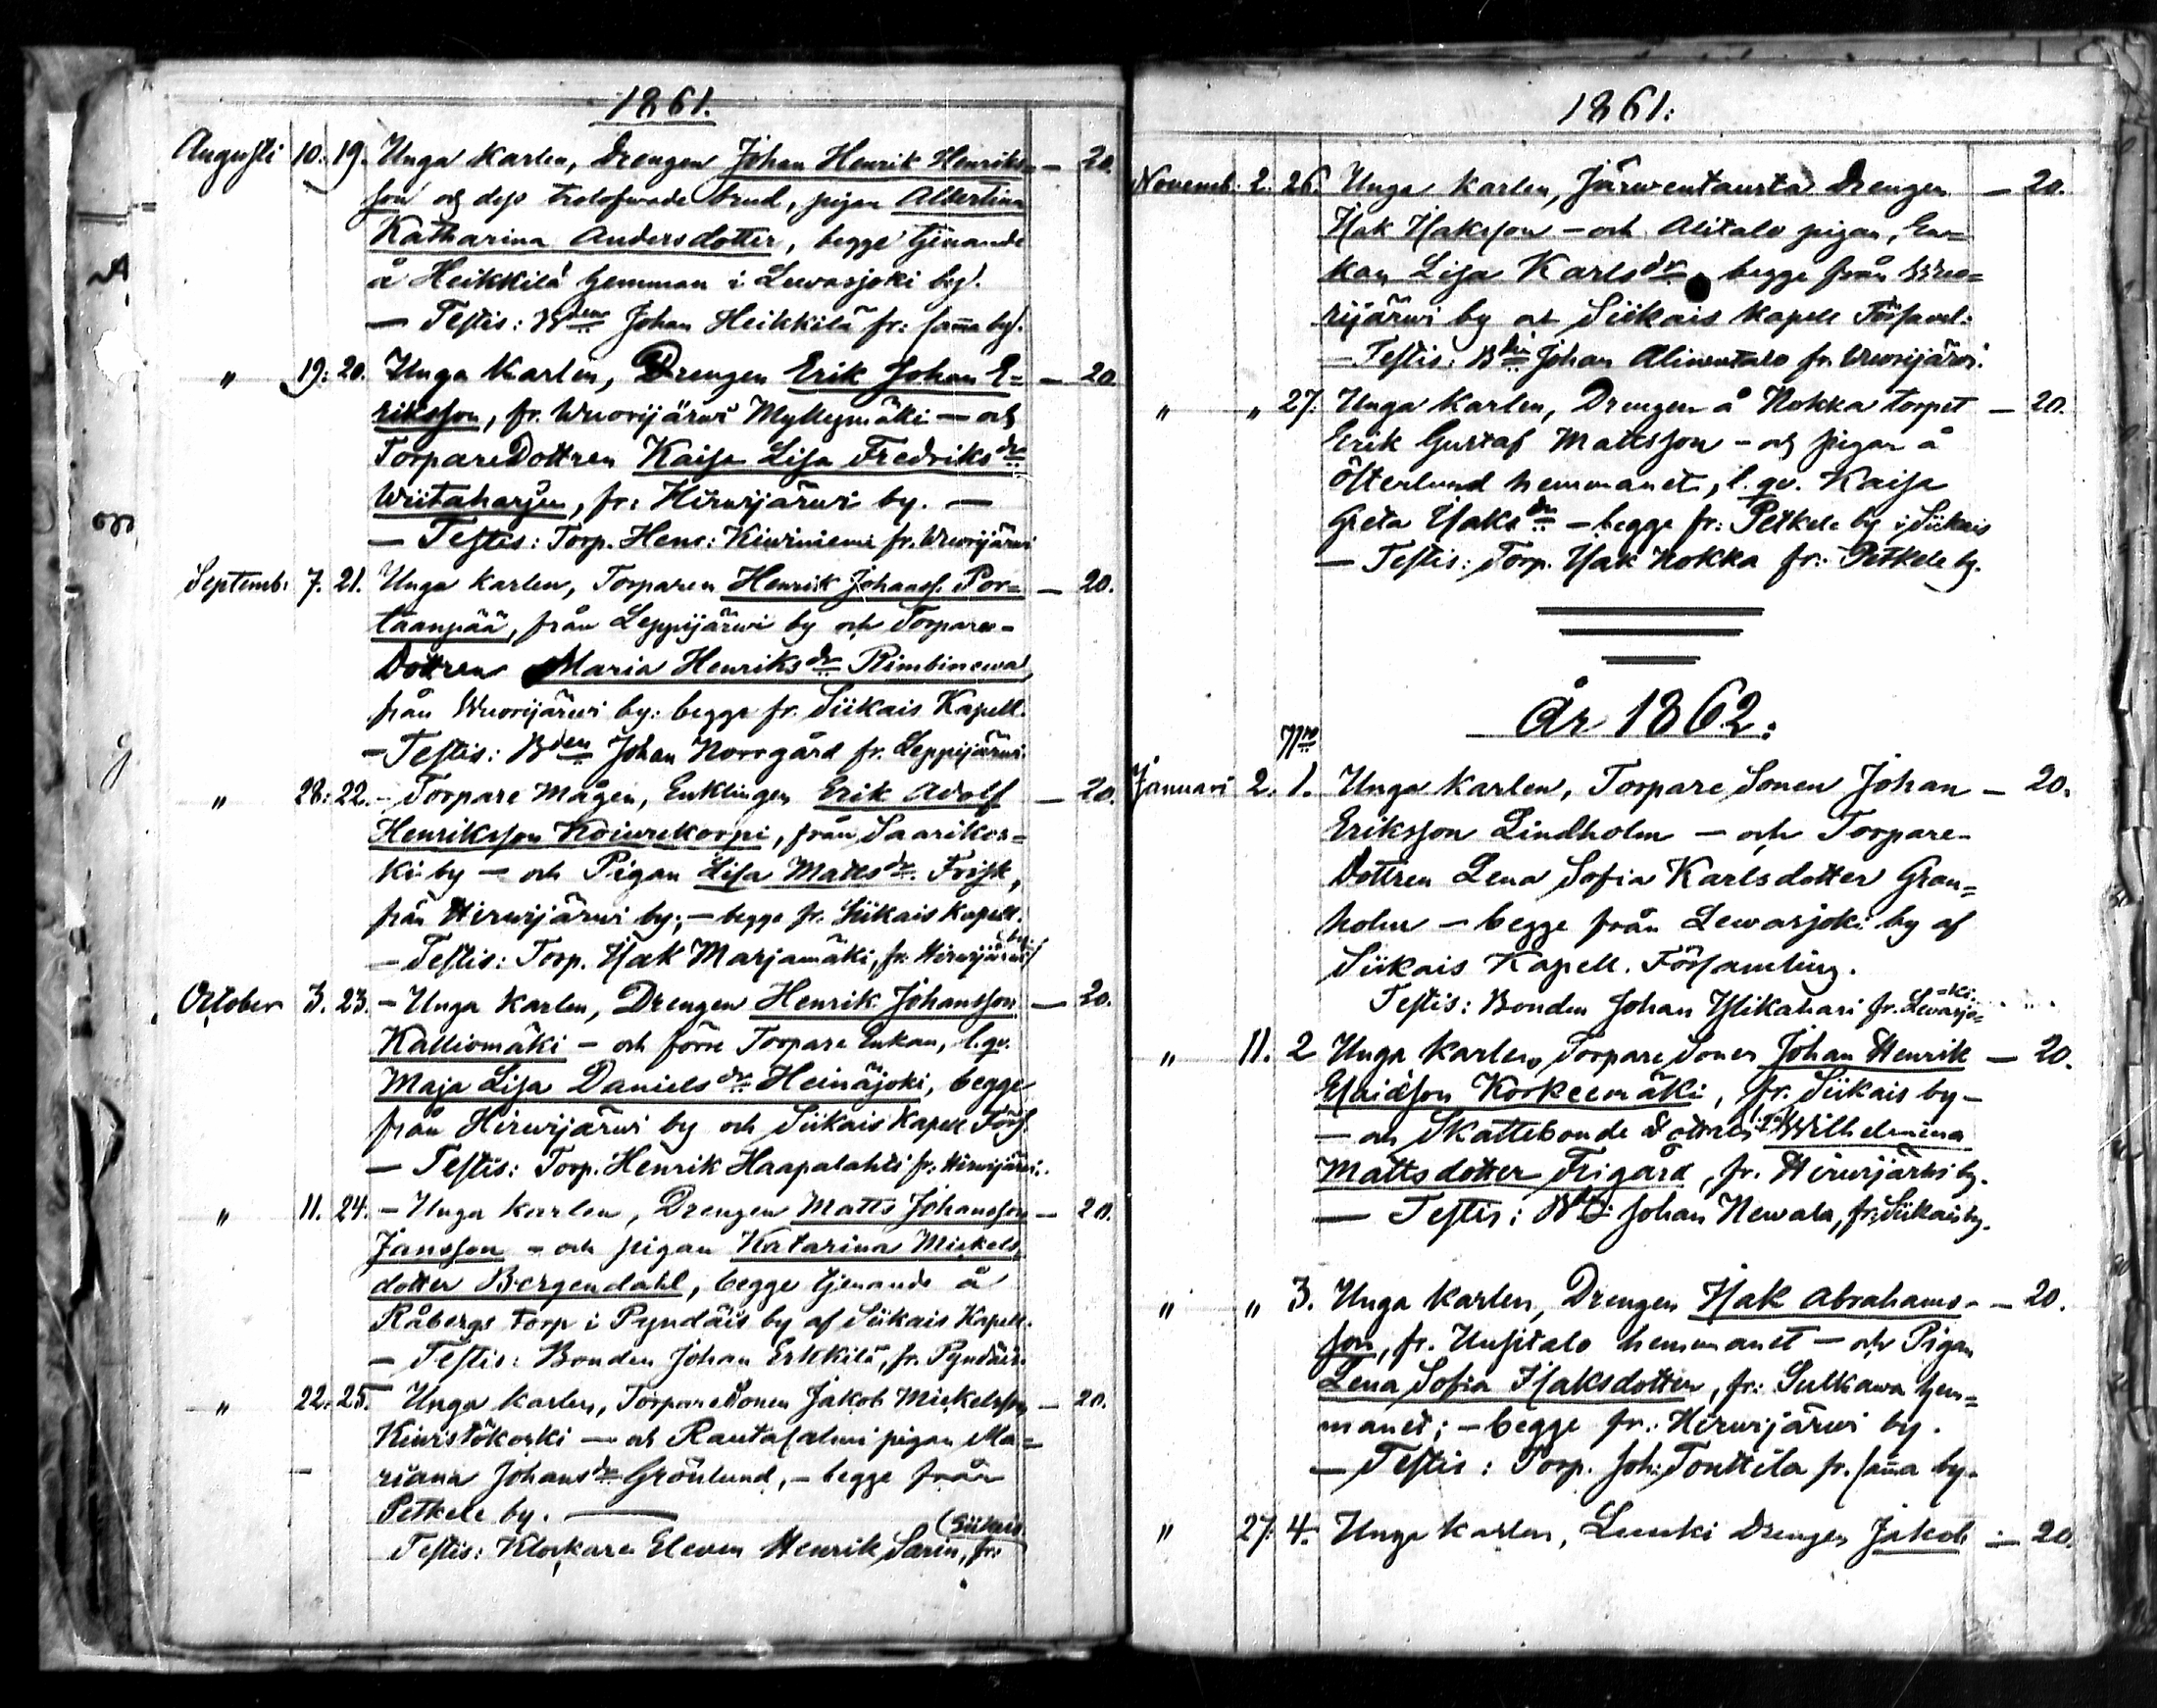 1861.
Augusti 10. 19. Unga Karlen, Drengen Johan Henrik Henriks= — 20.
son och dess trolofwade brud, pigan Albertina
Katharina Andersdotter, begge tjenande
å Heikkilä hemman i Lewasjoki by.
— Testis: Bden Johan Heikkilä fr: sama by.
" 19. 20. Unga Karlen, Drengen Erik Johan E= — 20
riksson, fr. Wuorijärwi Myllymäki — och
TorpareDottren Kaisa Lisa Fredriksdr
Wiitaharju, fr: Hirwijärwi by. —
— Testis: Torp. Henr: Kiwiniemi fr. Wuorijärwi
Septemb: 7. 21. Unga Karlen, Torparen Henrik Johanss. Por= — 20.
taanpää, från Leppijärwi by och Torpare-
Dottren Maria Henriksdr Rimbinewa
från Wuorijärwi by: begge fr. Siikais Kapell.
— Testis: Bden Johan Norrgård fr. Leppijärwi.
" 28. 22. — Torpare Mågen, Enklingen Erik Adolf — 20.
Henriksson Koiwrekorpi, från Saarikos=
ki by — och Pigan Lisa Mattsdr. Frisk,
från Hirwijärwi by; — begge fr. Siikais Kapell.
— Testis: Torp. Isak Marjamäki, fr. Hirwijärwi by.
October 3. 23. — Unga Karlen, Drengen Henrik Johansson — 20.
Kalliomäki — och förre Torpare Enkan, l. qv.
Maja Lisa Danielsdr Heinäjoki, begge
från Hirwijärwi by och Siikais Kapell Förs.
— Testis: Torp. Henrik Haapalahti fr. Hirwijärwi.
" 11. 24. — Unga Karlen, Drengen Matts Johansson — 20.
Jansson — och pigan Katarina Mickels-
dotter Bergendahl, begge tjenande å
Råbergs torp i Pyndäis by af Siikais Kapell.
— Testis: Bonden Johan Erkkilä, fr. Pyndäis.
" 22. 25. Unga Karlen, TorpareSonen Jakob Mickelsson — 20.
Kiwistökoski — och Rautasalmi pigan Ma=
riana Johansdr Grönlund, — begge från
Petkele by. —
Testis: Klockare Eleven Henrik Sarin, fr: (Siikais
1861:
Novemb. 2. 26. Unga Karlen, Järwentausta Drengen — 20.
Isak Isaksson — och Alitalo pigan, En=
kan Lisa Karlsdr begge från Wuo=
rijärwi by och Siikais Kapell Församl:
— Testis: Bdn Johan Alinentalo fr. Wuorijärwi.
" " 27. Unga Karlen, Drengen å Nokka torpet — 20.
Erik Gustaf Mattsson — och pigan å
Österlund hemmanet, l. qv. Kaisa
Greta Isaksdr — begge fr: Petkele by i Siikais
— Testis: Torp. Isak Nokka fr: Petkele by.
År 1862:
Nro
Januari 2. 1. Unga Karlen, Torpare Sonen Johan — 20.
Eriksson Lindholm — och Torpare-
Dottren Lena Sofia Karlsdotter Gran=
holm — begge från Lewasjoki by af
Siikais Kapell. Församling.
Testis: Bonden Johan Ylikahari fr. Lewasjo=ki.
" 11. 2 Unga Karlen, Torpare Sonen Johan Henrik — 20.
Esaiasson Korkeemäki, fr. Siikais by —
— och Skattebonde Dottren l. qv. Wilhelmina
Mattsdotter Frigård, fr. Hirwijärwi by.
— Testis: Bd: Johan Newala, fr: Siikais by.
" " 3. Unga Karlen, Drengen Isak Abrahams- — 20.
son, fr. Uusitalo hemmanet — och Pigan
Lena Sofia Isaksdotter, fr: Sulkawa hem=
manet; — begge fr: Hirwijärwi by.
— Testis: Torp. Joh: Tonttila fr. sama by.
" 27. 4. Unga Karlen, Luuski Drengen Jakob — 20.